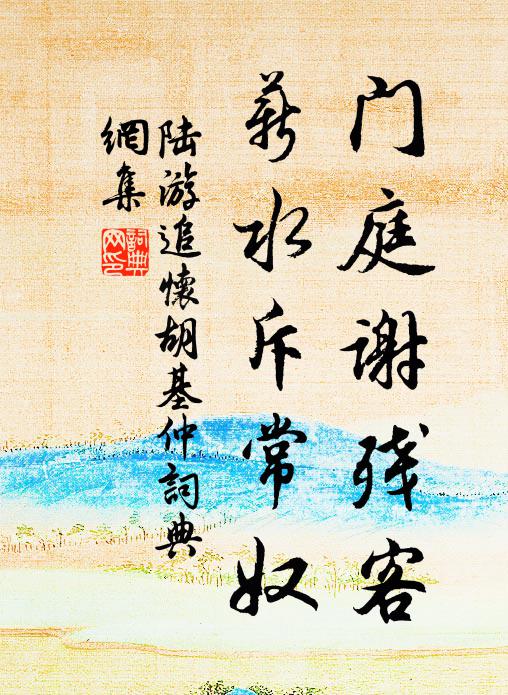 门庭谢残客
薪水斥常奴
陆游追懷胡基仲詞典
網集
詞典
网印